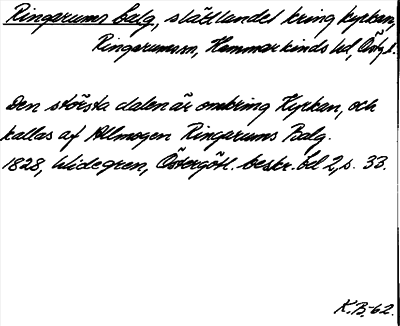 Ringarums balg, slättlandet kring kyrkan,
Ringarums sn, Hammarkinds hd, Östgl.
Den största dalen är omkring Kyrkan, och
kallas af Allmogen Ringarums Balg.
1828, Widegren, Östergötl. beskr. bd 2, s. 33.
K.B.-62.